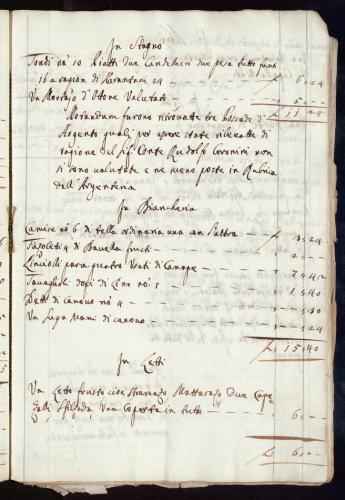 In Stagno
Tondi nō 10 Piatti due Candellieri due pesa tutto funti
16 a ragion di Karantani 24 — f 6:24
Un Mortaio d'Ottone Valutato f 5:—
f 11:24
Notandum furono ritrovate tre Possade d'
Argento quali per essere state rilevate di
ragione del Sig. Conte Rudolf Coronini non
si sono valutate e ne meno poste in Rubrica
dell'Argenteria
In Biancheria
Camise nō 6 di tella ordinaria una an l'altra f 3:24
Fasoleti 4 di Bavella frusti — 2:—
Linciolli para quattro Usati di Canape — 7:42
Tovaglioli dozi di Lino nō 5 — 1:40
Detti di canovo nō 4 —
Un Suga Mani di canovo — :24
f 15:40
In Letti
Un Letto frusto cioe Stramazo Mattarazo due Cape
zali Una Coperta in tutto — 6:—
f 6:—